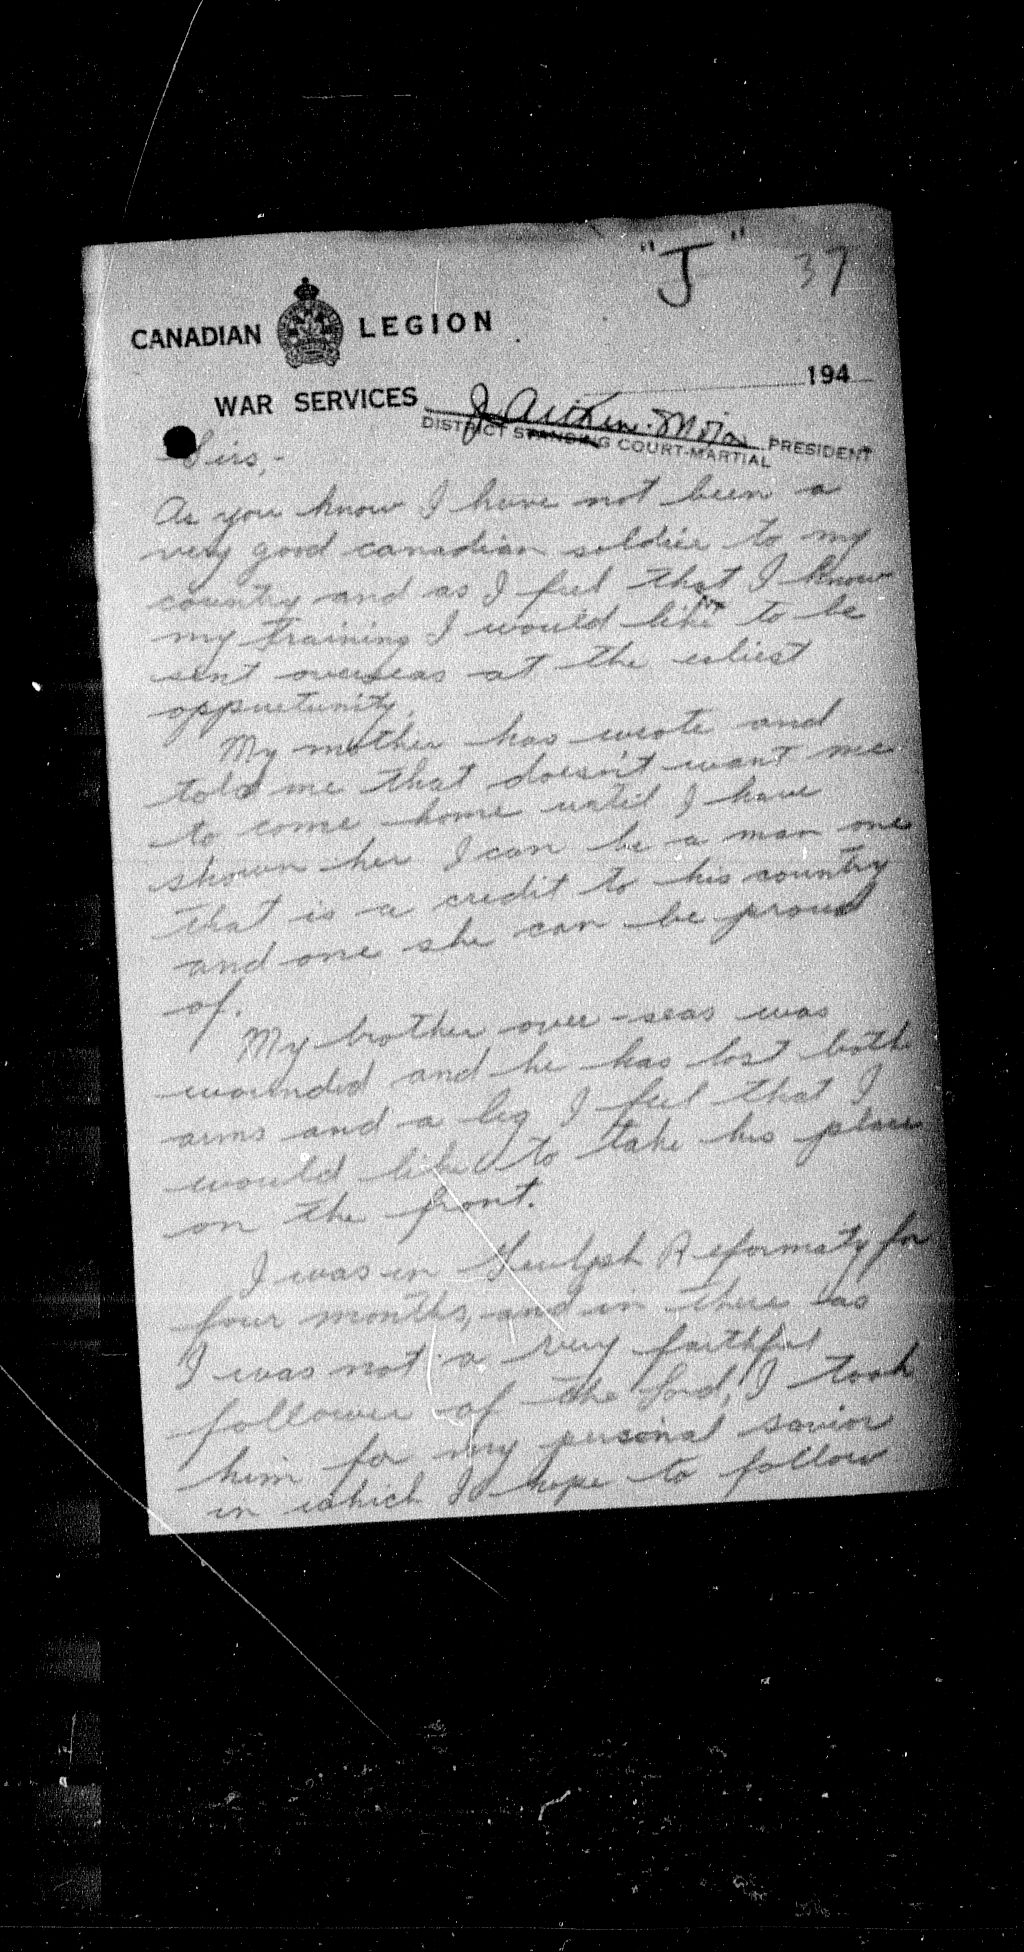 "J" 37
CANADIAN LEGION
194
WAR SERVICES
J Aitken Major PRESIDENT
DISTRICT STANDING COURT-MARTIAL
Sirs,-
As you know I have not been a
very good canadian soldier to my
country and as I feel that I know
my training I would like to be
sent overseas at the earliest
oppurtunity.
My mother has wrote and
told me that doesn't want me
to come home until I have
shown her I can be a man one
that is a credit to his country
and one she can be proud
of.
My brother over-seas was
wounded and he has lost both
arms and a leg I feel that I
would like to take his place
on the front.
I was in Guelph Reformaty for
four months, and in there as
I was not a very faithful
follower of the Lord, I took
him for my personal savior
in which I hope to follow